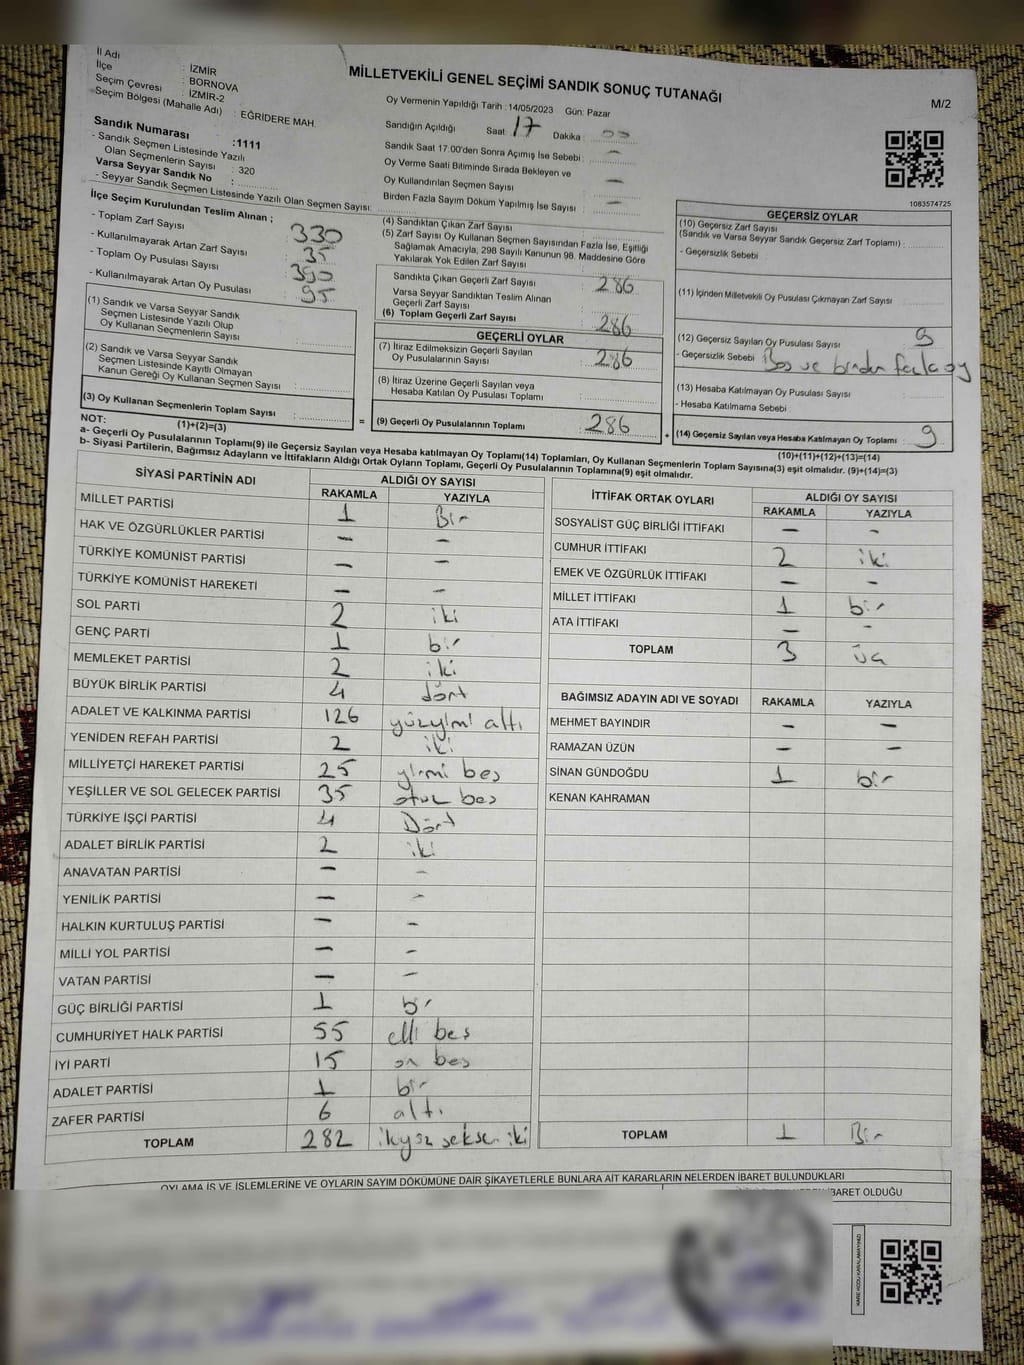 İl Adı : İZMİR
İlçe : BORNOVA
Seçim Çevresi : İZMİR-2
Seçim Bölgesi (Mahalle Adı) : EĞRİDERE MAH.
Sandık Numarası :1111
- Sandık Seçmen Listesinde Yazılı
Olan Seçmenlerin Sayısı : 320
Varsa Seyyar Sandık No :
- Seyyar Sandık Seçmen Listesinde Yazılı Olan Seçmen Sayısı:
MİLLETVEKİLİ GENEL SEÇİMİ SANDIK SONUÇ TUTANAĞI
M/2
Oy Vermenin Yapıldığı Tarih :14/05/2023 Gün: Pazar
Sandığın Açıldığı Saat: 17 Dakika : 00
Sandık Saat 17.00'den Sonra Açımış İse Sebebi : -
Oy Verme Saati Bitiminde Sırada Bekleyen ve
Oy Kullandırılan Seçmen Sayısı : -
Birden Fazla Sayım Döküm Yapılmış İse Sayısı : -
1083574725
İlçe Seçim Kurulundan Teslim Alınan ;
- Toplam Zarf Sayısı : 330
- Kullanılmayarak Artan Zarf Sayısı : 35
- Toplam Oy Pusulası Sayısı
- Kullanılmayarak Artan Oy Pusulası : 95
(1) Sandık ve Varsa Seyyar Sandık
Seçmen Listesinde Yazılı Olup
Oy Kullanan Seçmenlerin Sayısı :
(2) Sandık ve Varsa Seyyar Sandık
Seçmen Listesinde Kayıtlı Olmayan
Kanun Gereği Oy Kullanan Seçmen Sayısı :
(3) Oy Kullanan Seçmenlerin Toplam Sayısı :
(1)+(2)=(3)
(4) Sandıktan Çıkan Zarf Sayısı :
(5) Zarf Sayısı Oy Kullanan Seçmen Sayısından Fazla İse, Eşitliği
Sağlamak Amacıyla, 298 Sayılı Kanunun 98. Maddesine Göre
Yakılarak Yok Edilen Zarf Sayısı :
Sandıkta Çıkan Geçerli Zarf Sayısı : 286
Varsa Seyyar Sandıktan Teslim Alınan
Geçerli Zarf Sayısı :
(6) Toplam Geçerli Zarf Sayısı : 286
GEÇERLİ OYLAR
(7) İtiraz Edilmeksizin Geçerli Sayılan
Oy Pusulalarının Sayısı : 286
(8) İtiraz Üzerine Geçerli Sayılan veya
Hesaba Katılan Oy Pusulası Toplamı :
= (9) Geçerli Oy Pusulalarının Toplamı : 286
GEÇERSİZ OYLAR
(10) Geçersiz Zarf Sayısı
(Sandık ve Varsa Seyyar Sandık Geçersiz Zarf Toplamı) :
- Geçersizlik Sebebi :
(11) İçinden Milletvekili Oy Pusulası Çıkmayan Zarf Sayısı :
(12) Geçersiz Sayılan Oy Pusulası Sayısı : 9
- Geçersizlik Sebebi : Boş ve birden fazla oy
(13) Hesaba Katılmayan Oy Pusulası Sayısı :
- Hesaba Katılmama Sebebi :
+ (14) Geçersiz Sayılan veya Hesaba Katılmayan Oy Toplamı : 9
(10)+(11)+(12)+(13)=(14)
NOT:
a- Geçerli Oy Pusulalarının Toplamı(9) ile Geçersiz Sayılan veya Hesaba katılmayan Oy Toplamı(14) Toplamları, Oy Kullanan Seçmenlerin Toplam Sayısına(3) eşit olmalıdır. (9)+(14)=(3)
b- Siyasi Partilerin, Bağımsız Adayların ve İttifakların Aldığı Ortak Oyların Toplamı, Geçerli Oy Pusulalarının Toplamına(9) eşit olmalıdır.
SİYASİ PARTİNİN ADI ALDIĞI OY SAYISI
RAKAMLA YAZIYLA
MİLLET PARTİSİ 1 Bir
HAK VE ÖZGÜRLÜKLER PARTİSİ - -
TÜRKİYE KOMÜNİST PARTİSİ - -
TÜRKİYE KOMÜNİST HAREKETİ - -
SOL PARTİ 2 iki
GENÇ PARTİ 1 bir
MEMLEKET PARTİSİ 2 iki
BÜYÜK BİRLİK PARTİSİ 4 dört
ADALET VE KALKINMA PARTİSİ 126 yüzyirmi altı
YENİDEN REFAH PARTİSİ 2 iki
MİLLİYETÇİ HAREKET PARTİSİ 25 yirmi beş
YEŞİLLER VE SOL GELECEK PARTİSİ 35 otuz beş
TÜRKİYE İŞÇİ PARTİSİ 4 Dört
ADALET BİRLİK PARTİSİ 2 iki
ANAVATAN PARTİSİ - -
YENİLİK PARTİSİ - -
HALKIN KURTULUŞ PARTİSİ - -
MİLLİ YOL PARTİSİ - -
VATAN PARTİSİ - -
GÜÇ BİRLİĞİ PARTİSİ 1 bir
CUMHURİYET HALK PARTİSİ 55 elli beş
İYİ PARTİ 15 on beş
ADALET PARTİSİ 1 bir
ZAFER PARTİSİ 6 altı
TOPLAM 282 ikiyüz seksen iki
İTTİFAK ORTAK OYLARI ALDIĞI OY SAYISI
RAKAMLA YAZIYLA
SOSYALİST GÜÇ BİRLİĞİ İTTİFAKI - -
CUMHUR İTTİFAKI 2 iki
EMEK VE ÖZGÜRLÜK İTTİFAKI - -
MİLLET İTTİFAKI 1 bir
ATA İTTİFAKI - -
TOPLAM 3 üç
BAĞIMSIZ ADAYIN ADI VE SOYADI RAKAMLA YAZIYLA
MEHMET BAYINDIR - -
RAMAZAN ÜZÜN - -
SİNAN GÜNDOĞDU 1 bir
KENAN KAHRAMAN
TOPLAM 1 Bir
OYLAMA İŞ VE İŞLEMLERİNE VE OYLARIN SAYIM DÖKÜMÜNE DAİR ŞİKAYETLERLE BUNLARA AİT KARARLARIN NELERDEN İBARET BULUNDUKLARI
İBARET OLDUĞU
KARE KODU KARALAMAYINIZ!